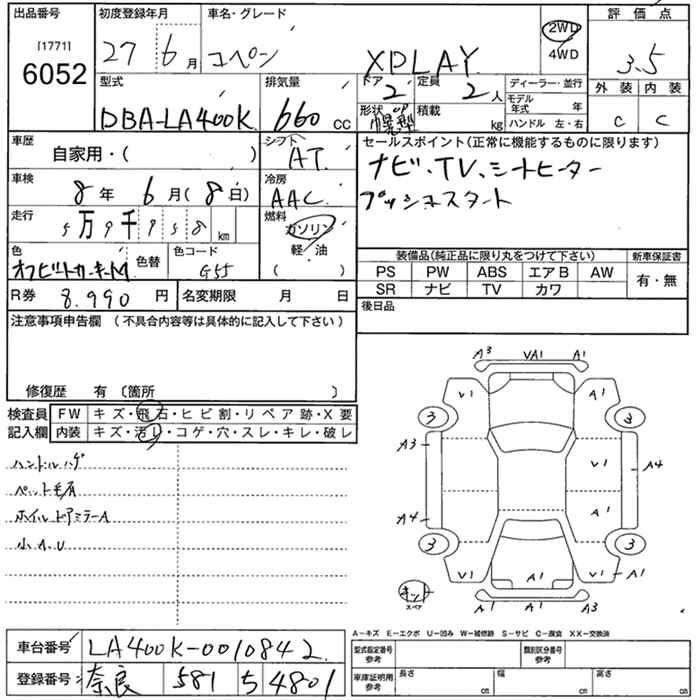 出品番号 初度登録年月 車名・グレード 評価点
[1771]
6052
27 6月 コペン XPLAY 2WD 3.5
4WD
型式 排気量 ドア 定員 ディーラー・並行 外装 内装
DBA-LA400K 660 cc 2 2人 モデル年式 年 C C
形状 積載 kg ハンドル 左・右
車歴 シフト セールスポイント(正常に機能するものに限ります)
自家用・( ) AT ナビ、TV、シートヒーター
車検 冷房 プッシュスタート
8年 6月(8日) AAC
走行 燃料
5万9千958km ガソリン
軽・油
( )
色 色替 色コード 装備品(純正品に限り丸をつけて下さい) 新車保証書
G55 PS PW ABS エアB AW 有・無
R券 8.990円 名変期限 月 日 SR ナビ TV カワ
注意事項申告欄 (不具合内容等は具体的に記入して下さい) 後日品
修復歴 有 〔箇所 〕
検査員 FW キズ・飛石・ヒビ割・リペア跡・X要
記入欄 内装 キズ・汚レ・コゲ・穴・スレ・キレ・破レ
ハンドルハゲ
ペット毛有
ホイルドアミラーA
小A.U
A3 VA1 A1
V1 A1
3 3
A3 V1 A4
A4 A1
3 3
V1 A1 V1 A1
キット
スペア A1 A1 A3
A-キズ E-エクボ U-凹み W-補修跡 S-サビ C-腐食 XX-交換済
車台番号 LA400K-0010842 型式指定番号 参考 類別区分番号 参考
登録番号 奈良 581 ち 4801 車庫証明用 参考 長さ cm 幅 cm 高さ cm